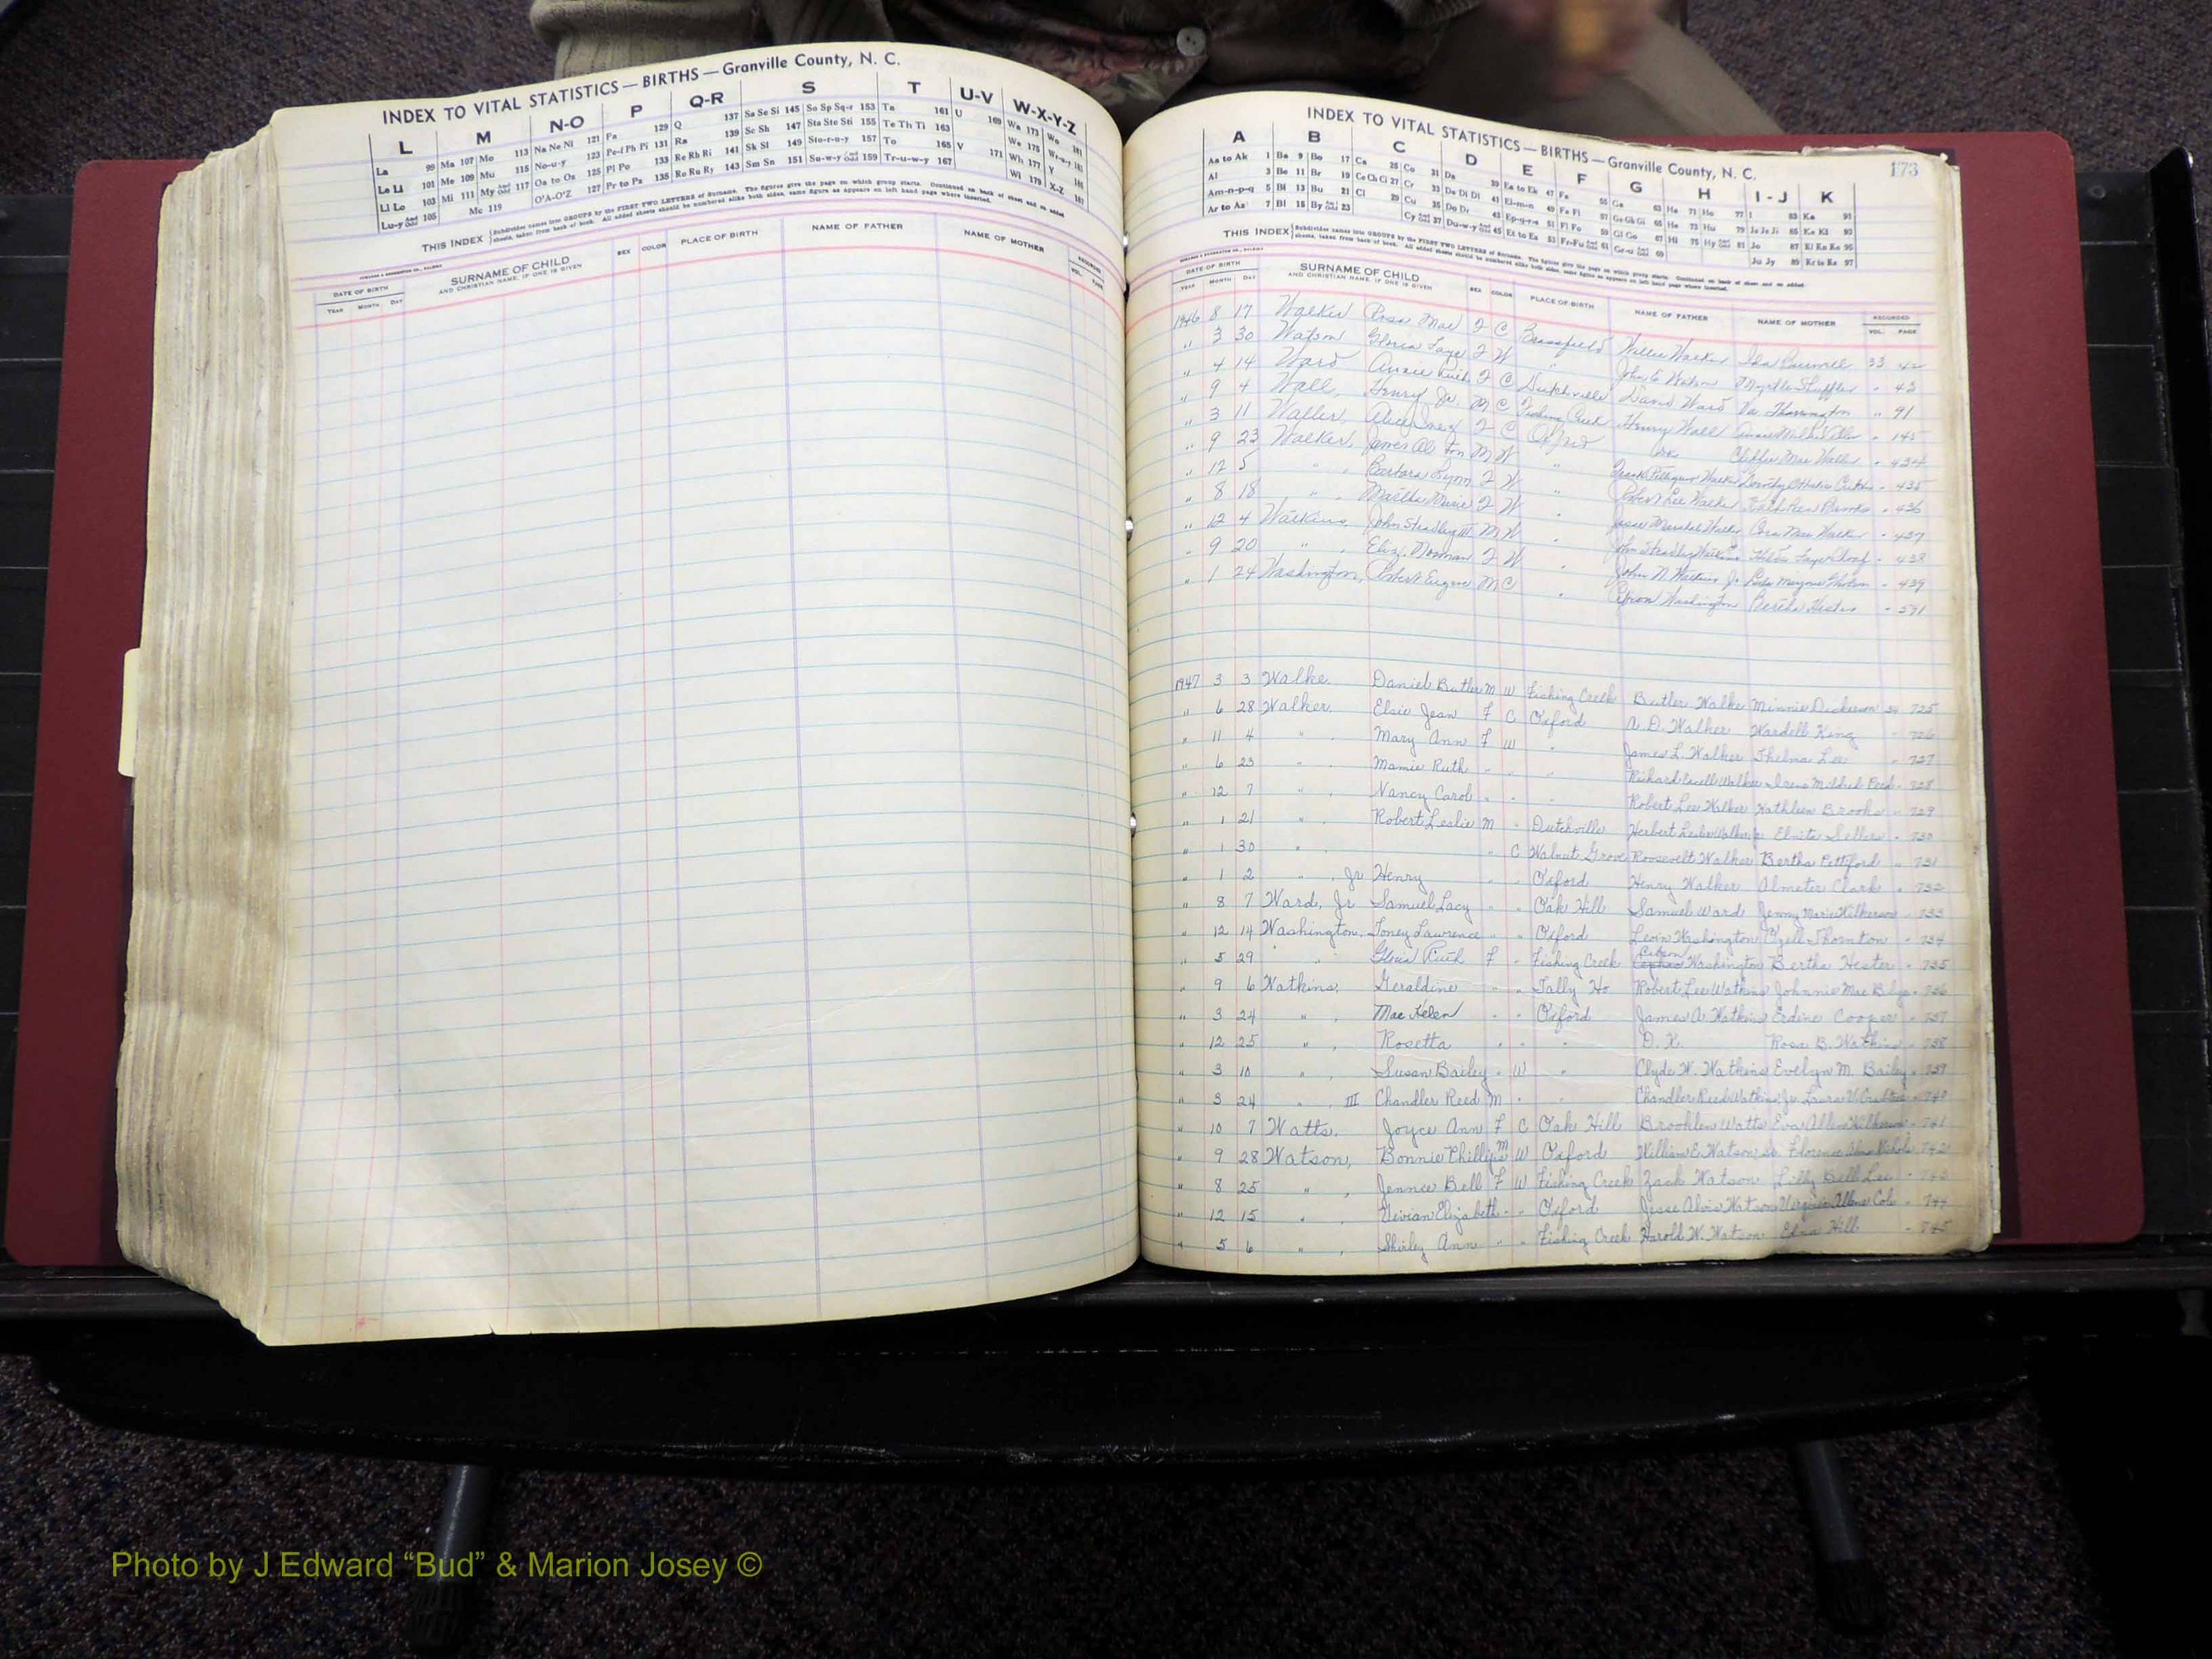 INDEX TO VITAL STATISTICS — BIRTHS — Granville County, N. C.
L M N-O P Q-R S T U-V W-X-Y-Z
La 99 Ma 107 Mo 113 Na Ne Ni 121 Pa 129 Q 137 Sa Se Si 145 So Sp Sq-r 153 Ta 161 U 169 Wa 173 Wo 181
Le Li 101 Me 109 Mu 115 No-u-y 123 Pe-f Ph Pi 131 Ra 139 Sc Sh 147 Sta Ste Sti 155 Te Th Ti 163 We 175
Li Lo 103 Mi 111 My 117 Oa to Os 125 Pl Po 133 Re Rh Ri 141 Sk Sl 149 Sto-r-u-y 157 To 165 V 171 Wh 177 Y
Lu-y 105 Mc 119 O'A-O'Z 127 Pr to Pz 135 Ro Ru Ry 143 Sm Sn 151 Su-w-y 159 Tr-u-w-y 167 Wi 179 X-Z
THIS INDEX Subdivides names into GROUPS by the FIRST TWO LETTERS of Surname. The figures give the page on which group starts. Continued on back of sheet and on added
sheets, taken from back of book. All added sheets should be numbered alike both sides, same figure as appears on left hand page where inserted.
DATE OF BIRTH SURNAME OF CHILD SEX COLOR PLACE OF BIRTH NAME OF FATHER NAME OF MOTHER RECORDED
YEAR MONTH DAY AND CHRISTIAN NAME, IF ONE IS GIVEN VOL. PAGE
INDEX TO VITAL STATISTICS — BIRTHS — Granville County, N. C.
173
A B C D E F G H I - J K
Aa to Ak 1 Ba 9 Bo 17 Ca 25 Co 31 Da 39 Ea to Ek 47 Fa 55 Ga 63 Ha 71 Ho 77 I 83 Ka 91
Al 3 Be 11 Br 19 Ce Ch Ci 27 Cr 33 De Di Dl 41 El-m-n 49 Fe Fi 57 Ge Gh Gi 65 He 73 Hu 79 Ja Je Ji 85 Ke Kl 93
Am-n-p-q 5 Bi 13 Bu 21 Cl 29 Cu 35 Do Dr 43 Ep-q-r-s 51 Fl Fo 59 Gl Go 67 Hi 75 Hy 81 Jo 87 Kl Kn Ko 95
Ar to Az 7 Bl 15 By 23 Cy 37 Du-w-y 45 Et to Ez 53 Fr-Fu 61 Gr-u 69 Ju Jy 89 Kr to Kz 97
THIS INDEX Subdivides names into GROUPS by the FIRST TWO LETTERS of Surname. The figures give the page on which group starts. Continued on back of sheet and on added
sheets, taken from back of book. All added sheets should be numbered alike both sides, same figure as appears on left hand page where inserted.
DATE OF BIRTH SURNAME OF CHILD SEX COLOR PLACE OF BIRTH NAME OF FATHER NAME OF MOTHER RECORDED
YEAR MONTH DAY AND CHRISTIAN NAME, IF ONE IS GIVEN VOL. PAGE
1946 8 17 Walker Rosa Mae F C Brassfield Willie Walker Ida 33 42
" 3 30 Watson Gloria Faye F W " John E Watson Myrtle Shuffler " 43
" 4 14 Ward Annie Ruth F C Dutchville David Ward Va. Tharrington " 91
" 9 4 Wall, Henry Jr. M C Fishing Creek Henry Wall Annie " 145
" 3 11 Waller, Alice Inez F C Oxford Mae Waller " 434
" 9 23 Walker, James Alston M W " Walker Dorothy " 435
" 12 5 " , Barbara Lynn F W " Robert Lee Walker Kathleen Brooks " 436
" 8 18 " , Marie F W " Jesse Marshall Walker Cora Mae Walker " 437
" 12 4 Watkins, John Stradley III M W " John Stradley Watkins " 438
" 9 20 " , Eliz. Norman F W " John N. Watkins Jr. " 439
" 1 24 Washington, Robert Eugene M C " Washington Bertha Hester " 591
1947 3 3 Walke. Daniel Butler M W Fishing Creek Butler Walke Minnie Dickerson 34 725
" 6 28 Walker. Elsie Jean F C Oxford A. D. Walker Wardell King " 726
" 11 4 " . Mary Ann F W " James L. Walker Thelma Lee " 727
" 6 23 " . Mamie Ruth " " " Richard Walker Irene Mildred Reed " 728
" 12 7 " . Nancy Carol " " " Robert Lee Walker Kathleen Brooks " 729
" 1 21 " . Robert Leslie M " Dutchville Herbert Leslie Walker Jr. Elnita Sellers " 730
" 1 30 " . " C Walnut Grove Roosevelt Walker Bertha Pettiford " 731
" 1 2 " , Jr Henry " " Oxford Henry Walker Almeter Clark " 732
" 8 7 Ward, Jr Samuel Lacy " " Oak Hill Samuel Ward Jenny Marie Wilkerson " 733
" 12 14 Washington, Toney Lawrence " " Oxford Levin Washington Ozell Thornton " 734
" 5 29 " Gloria Ruth F " Fishing Creek Washington Bertha Hester " 735
" 9 6 Watkins, Geraldine " " Tally Ho Robert Lee Watkins Johnnie Mae " 736
" 3 24 " , Mae Helen " " Oxford James A. Watkins Erdine Cooper " 737
" 12 25 " , Rosetta " " " D. K. Rosa B. Watkins " 738
" 3 10 " , Susan Bailey " W " Clyde W. Watkins Evelyn M. Bailey " 739
" 3 24 " , III Chandler Reed M " " Chandler Reed Watkins Jr. Laura V. Crabtree " 740
" 10 7 Watts, Joyce Ann F C Oak Hill Brooklen Watts Eva Allen Wilkerson " 741
" 9 28 Watson, Bonnie Phillips M W Oxford William E. Watson Sr. Florence Nichols 742
" 8 25 " , Jennie Bell F W Fishing Creek Zack Watson Lilly Bell Lee " 743
" 12 15 " , Vivian Elizabeth " " Oxford Jesse Alvis Watson Virginia Allene Cole " 744
" 5 6 " , Shirley Ann " " Fishing Creek Harold W. Watson Edna Hill " 745
Photo by J Edward “Bud” & Marion Josey ©